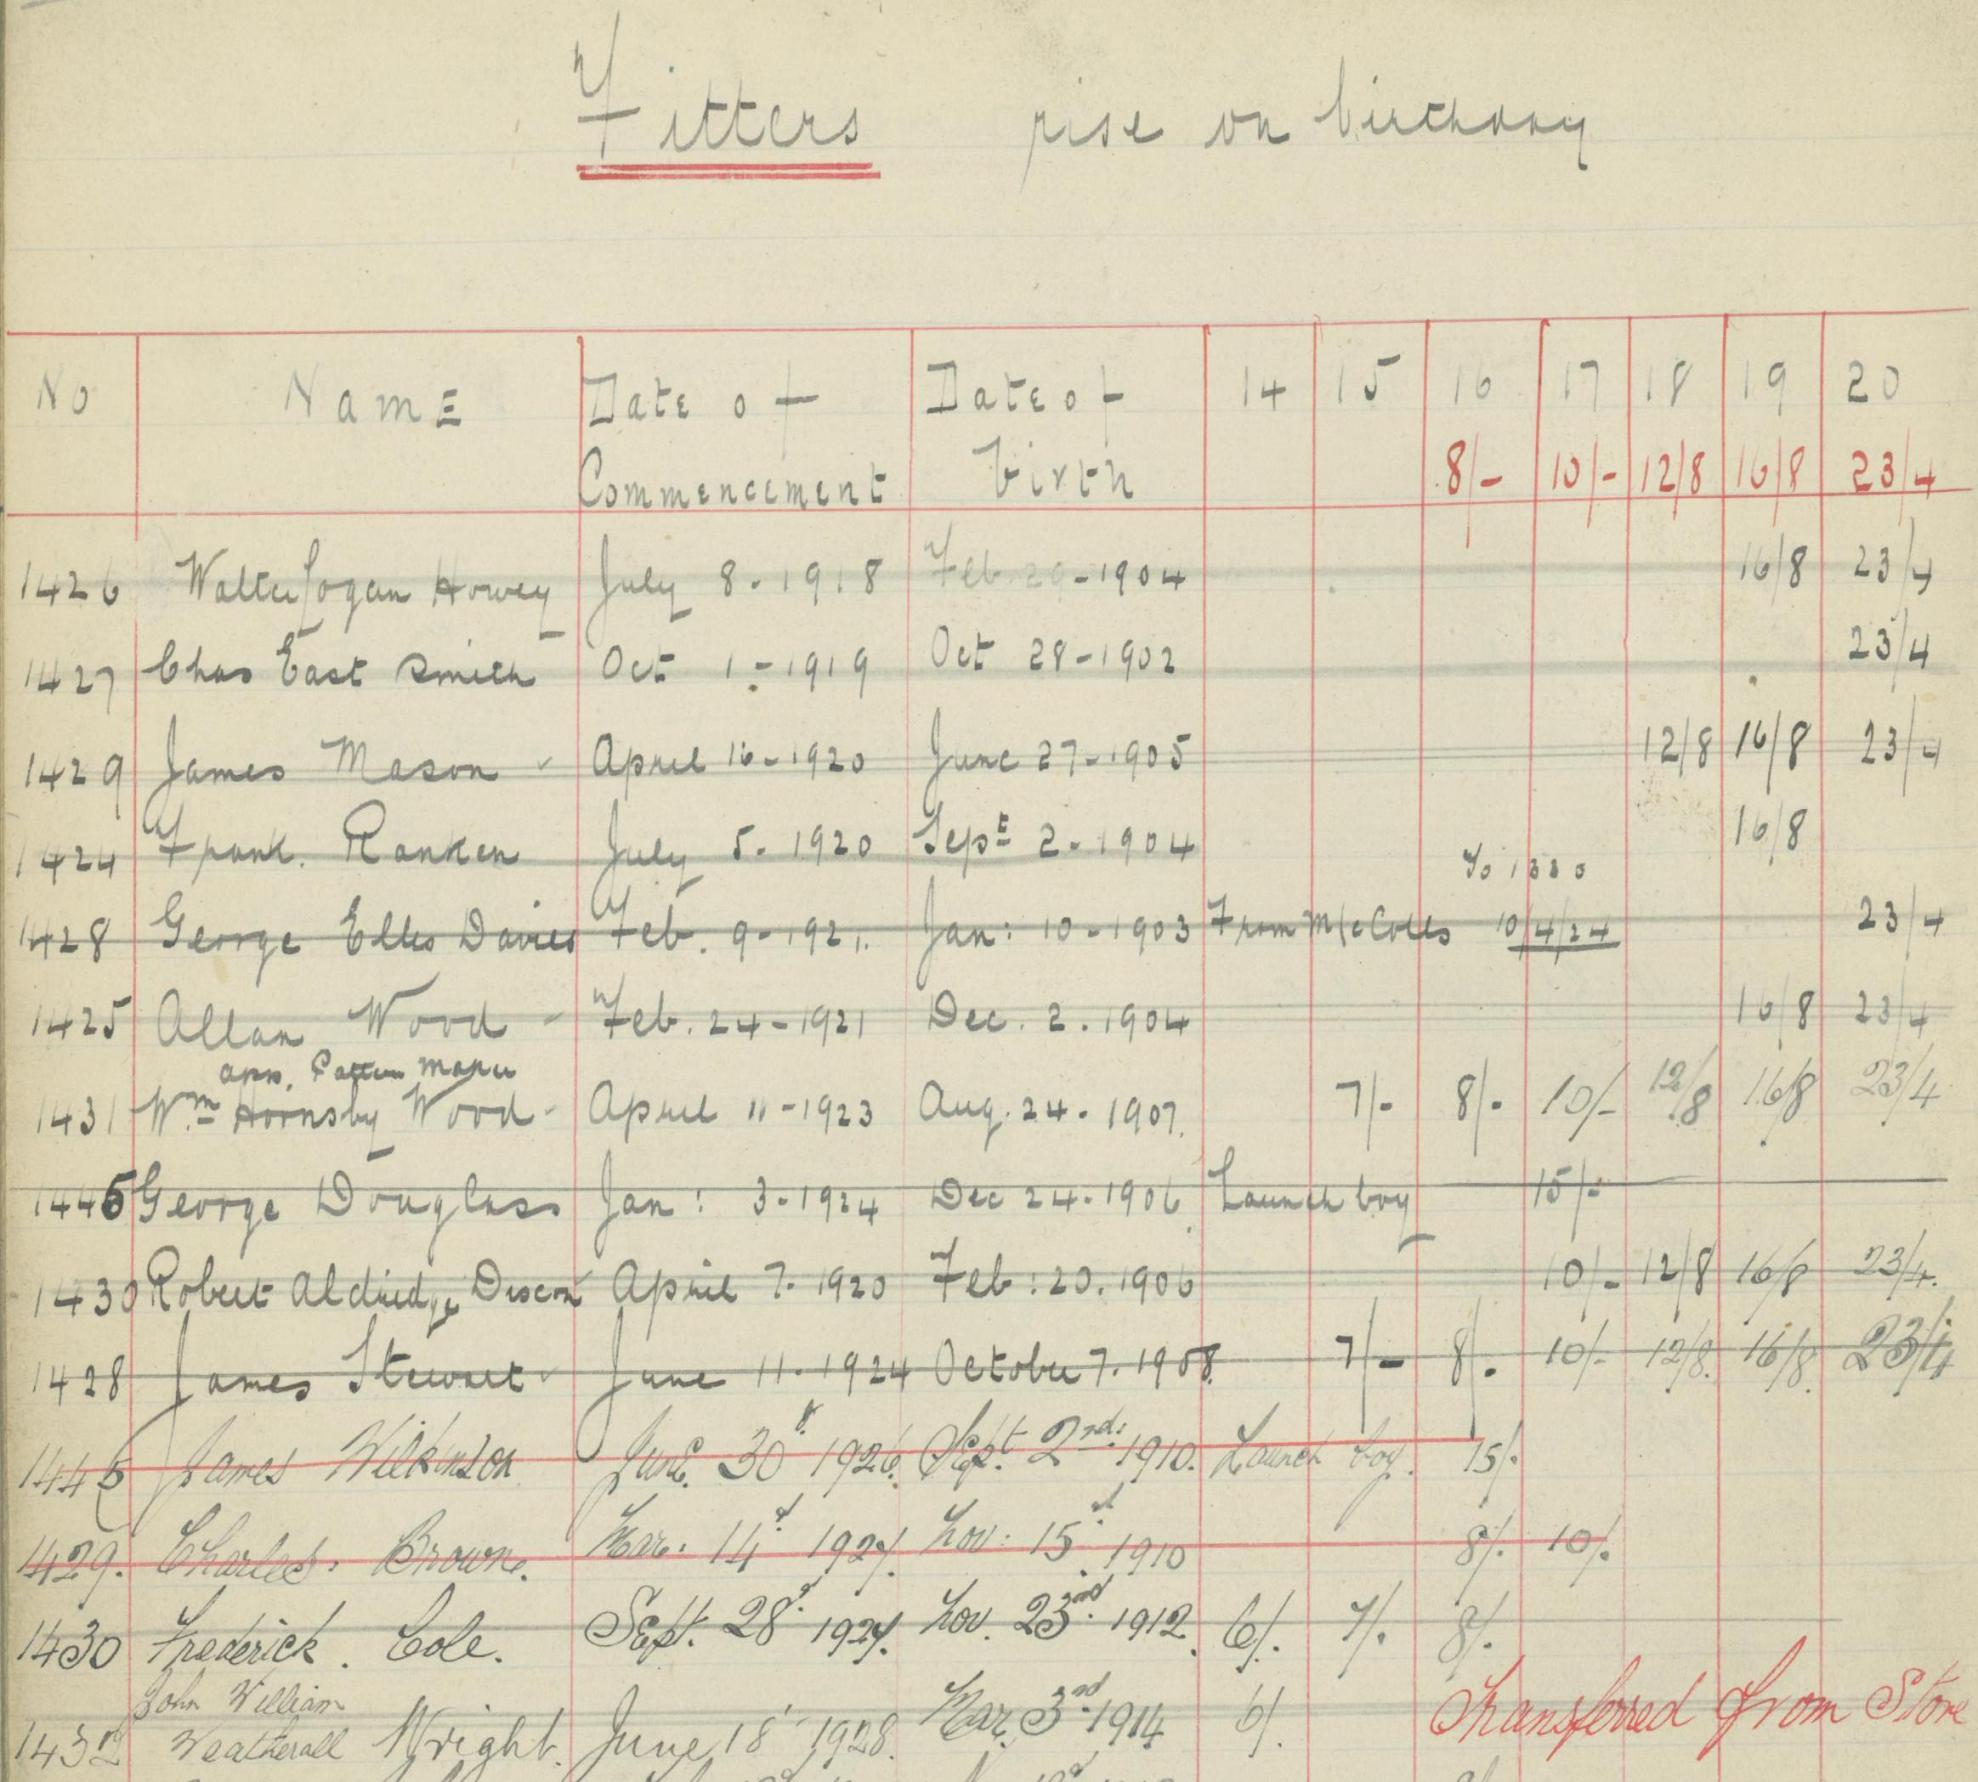 Fitters rise on birthday
No Name Date of Date of 14 15 16 17 18 19 20
Commencement birth 8/- 10/- 12/8 16/8 23/4
1426 Walter Logan Howey July 8-1918 Feb -1904 16/8 23/4
1427 Chas East Smith Oct 1-1919 Oct 28-1902 23/4
1429 James Mason April 16-1920 June 27-1905 12/8 16/8 23/4
1424 Frank. Ranken July 5-1920 Sept 2-1904 16/8
To 1330
1428 George Elles Davies Feb. 9-1921. Jan: 10-1903 From McColls 10/4/24 23/4
1425 Allan Wood - Feb. 24-1921 Dec. 2. 1904 16/8 23/4
app. Pattern Maker
1431 Wm Hornsby Wood - April 11-1923 Aug. 24. 1907. 7/- 8/- 10/- 12/8 16/8 23/4
1445 George Douglass Jan: 3-1924 Dec 24-1906 Launch boy 15/-
1430 Robert Aldridge April 7. 1920 Feb: 20. 1906 10/- 12/8 16/8 23/4.
1428 James Stewart June 11. 1924 October 7. 1908. 7/- 8/- 10/- 12/8. 16/8. 23/4
1445 James Wilkinson June. 30th 1926. Sept. 2nd. 1910. Launch boy. 15/.
1429. Charles. Brown. Mar. 14th 1927. Nov: 15th 1910 8/. 10/.
1430 Frederick. Cole. Sept. 28th. 1927. Nov. 23rd. 1912. 6/. 7/. 8/.
John William
1432 Weatherall Wright. June 18th 1928. Mar. 3rd. 1914 6/. Transferred from Store